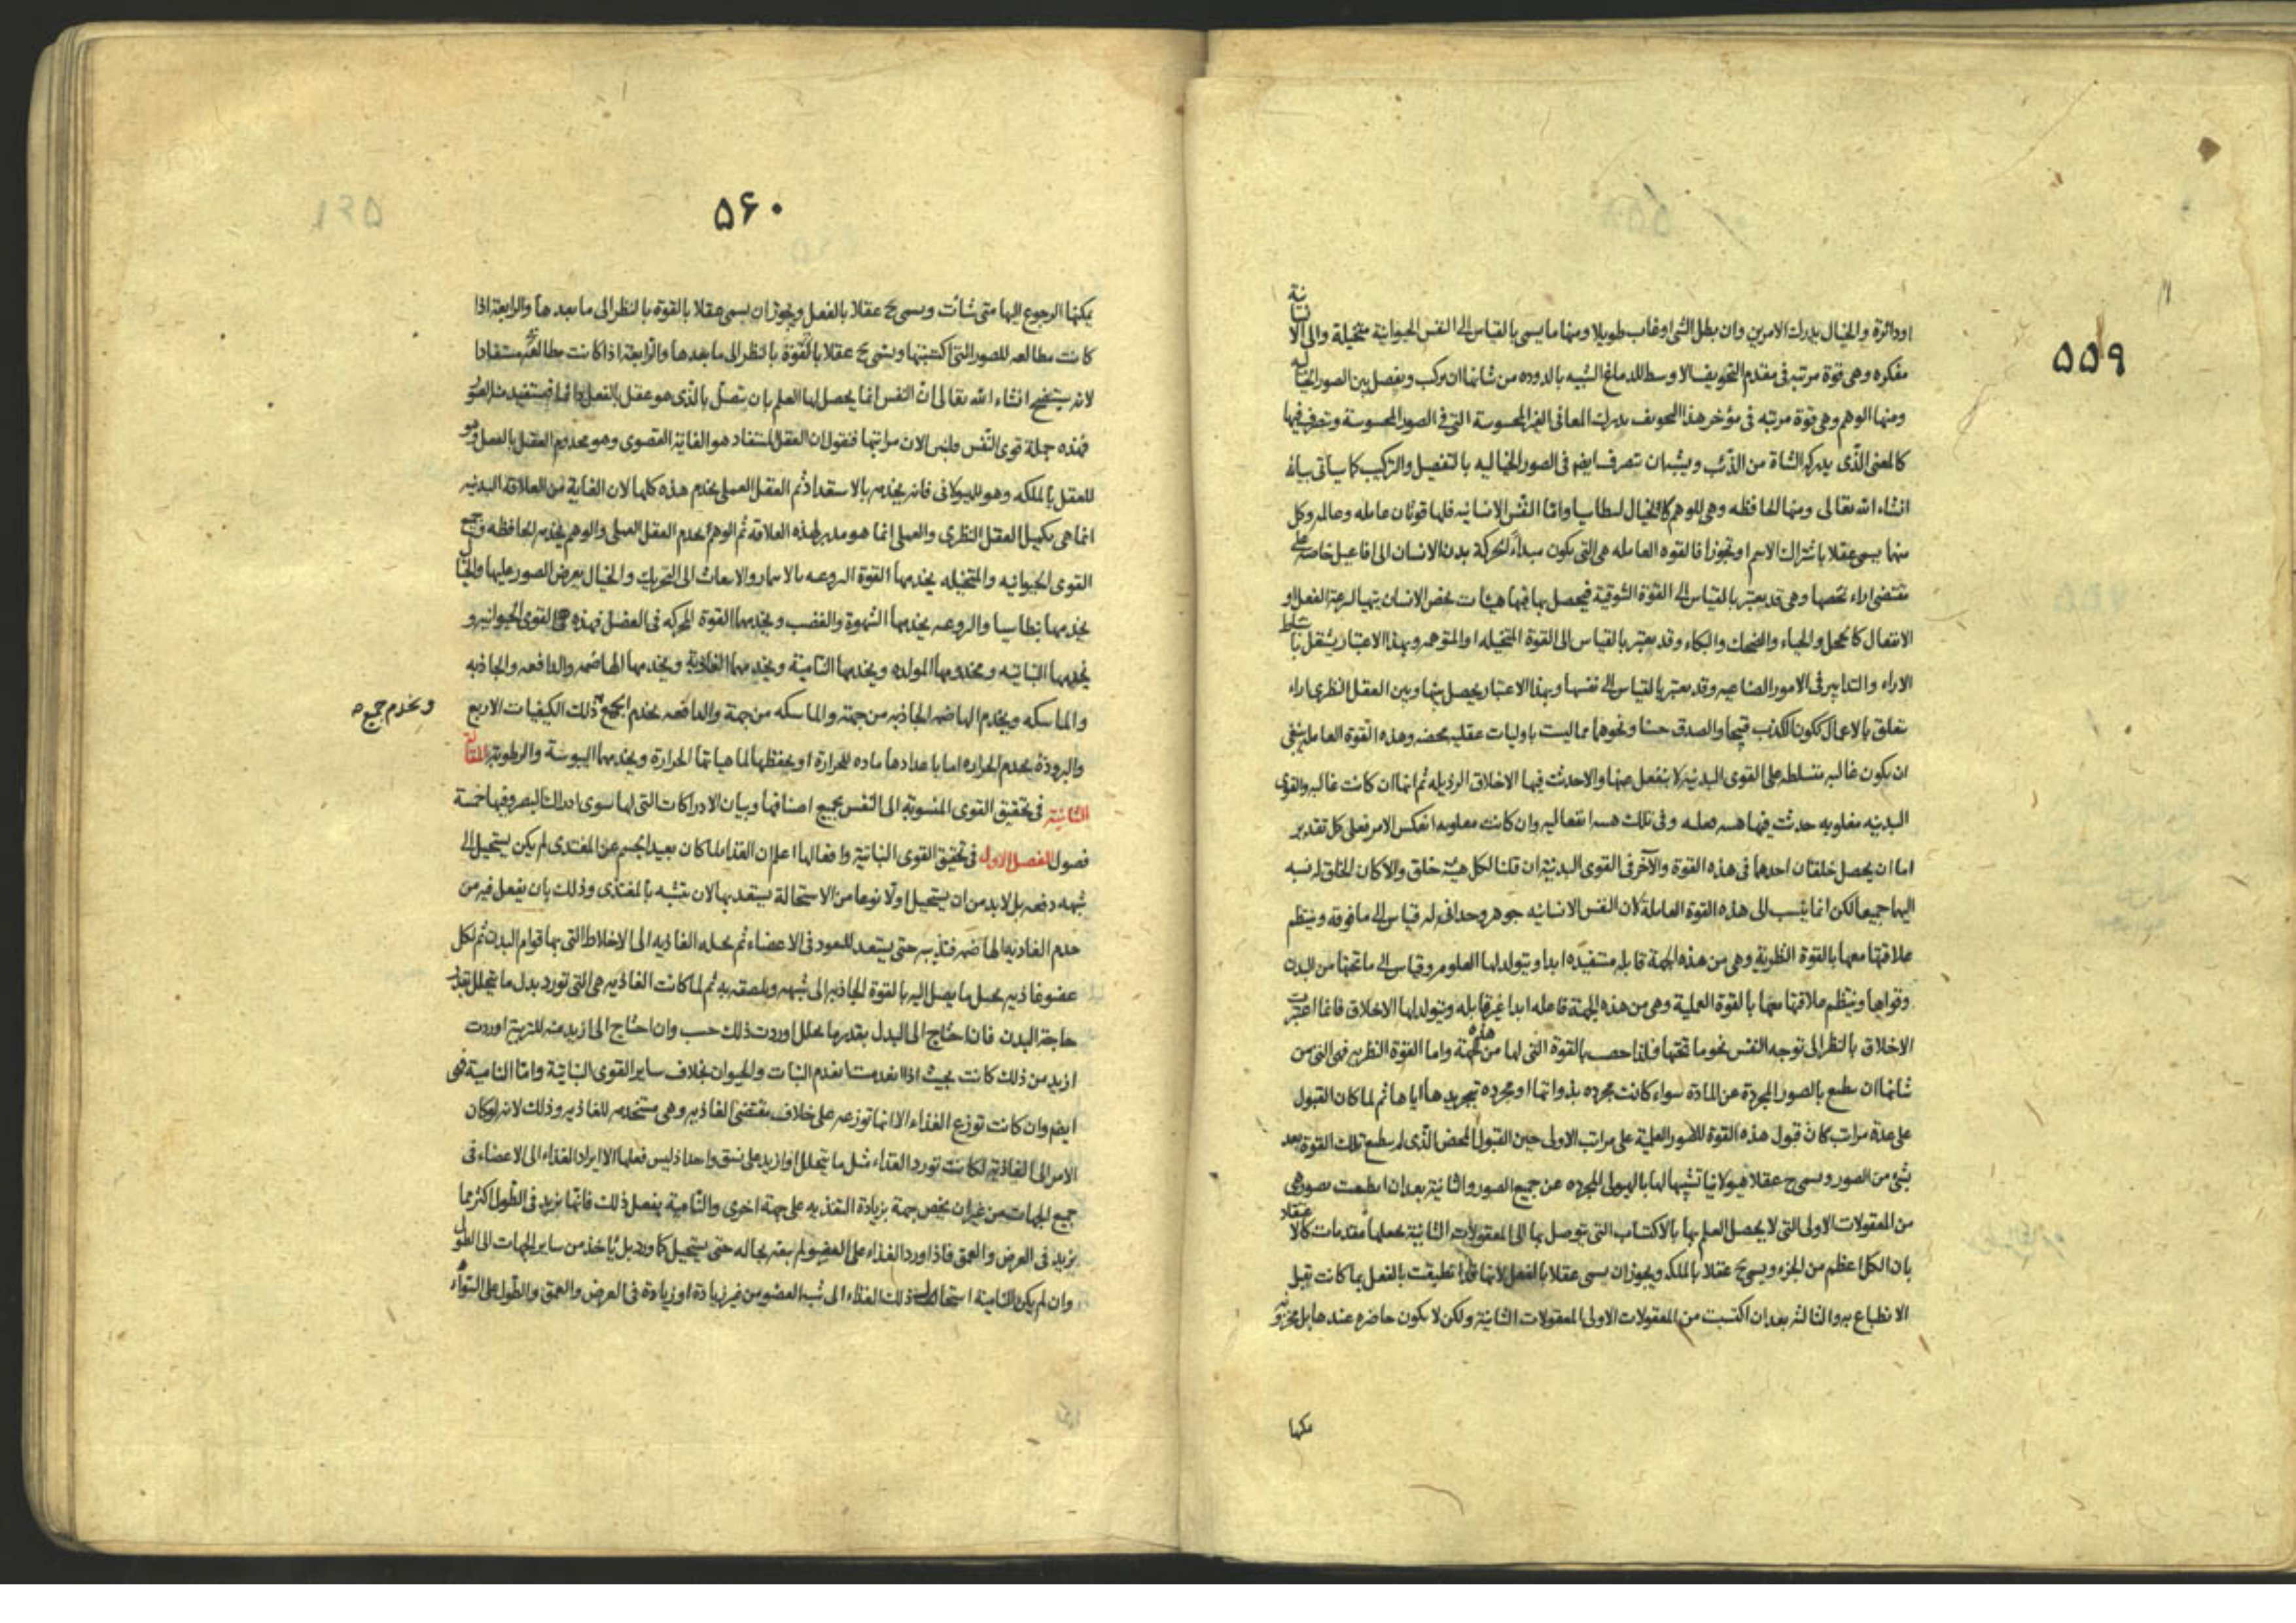 ۵۵۹
اودائرة والخيال يدرك الامرين وان بطل الشئ اوغاب طويلا ومنها ما يسمى بالقياس الى النفس الحيوانية متخيلة والى الانسانية
مفكره وهى قوة مرتبه فى مقدم التجويف الاوسط للدماغ الشبيه بالدوده من شانها ان يركب ويفصل بين الصور الخياليه
ومنها الوهم وهى قوة مرتبه فى مؤخر هذا التجويف يدرك المعانى الغير المحسوسة التى فى الصور المحسوسة ويتصرف فيها
كالمعنى الذى يدركه الشاة من الذئب ويشبه ان يتصرف ايضا فى الصور الخياليه بالتفصيل والتركيب كما سيأتى بيانه
انشاء الله تعالى ومنها الحافظه وهى للوهم كالخيال لبنطاسيا واما النفس الانسانيه فلها قوتان عامله وعالمه وكل
منهما يسمى عقلا باشتراك الاسم او تجوزا فالقوه العامله هى التى يكون مبداء لحركة بدن الانسان الى افاعيل خاصه على
مقتضى اراء تخصها وهى قد يعتبر بالقياس الى القوة الشوقية فيحصل بها فيها هيئات يخص الانسان يتهيا لسرعة الفعل او
الانفعال كالخجل والحياء والضحك والبكاء وقد يعتبر بالقياس الى القوة المتخيله او المتوهمه وبهذا الاعتبار يشتغل باستنباط
الاراء والتدابير فى الامور الصناعيه وقد يعتبر بالقياس الى نفسها وبهذا الاعتبار يحصل بينها وبين العقل النظرى اراء
يتعلق بالاعمال ككون الكذب قبيحا والصدق حسنا ونحوهما مما ليست باوليات عقليه محضه وهذه القوة العامله ينبغى
ان يكون غالبه متسلطه على القوى البدنيه لا ينفعل عنها والا حدثت فيها الاخلاق الرذيله ثم انها ان كانت غالبه والقوى
البدنيه مغلوبه حدث فيها هيئه فعليه وفى تلك هيئه انفعاليه وان كانت مغلوبه انعكس الامر فعلى كل تقدير
اما ان يحصل خلقان احدهما فى هذه القوة والآخر فى القوى البدنية ان قلنا لكل هيئة خلق والا كان الخلق له نسبه
اليهما جميعا لكن انما ينسب الى هذه القوة العاملة لان النفس الانسانيه جوهر وحدانى له قياس الى ما فوقه وينتظم
علاقتها معها بالقوة النظرية وهى من هذه الجهة قابله مستفيده ابدا ويتولد لها العلوم وقياس الى ما تحتها من البدن
وقواها وينتظم علاقتها معها بالقوة العملية وهى من هذه الجهة فاعله ابدا غير قابله ويتولد لها الاخلاق فانما اعتبرت
الاخلاق بالنظر الى توجه النفس نحو ما تحتها فلذا حصت بالقوة التى لها من هذه الجهة واما القوة النظريه فهى التى من
شانها ان ينطبع بالصور المجردة عن المادة سواء كانت مجرده بذواتها او مجرده بتجريدها اياها ثم لما كان القبول
على عدة مراتب كان قبول هذه القوة للصور العلمية على مراتب الاولى حين القبول المحض الذى لم ينطبع تلك القوة بعد
بشئ من الصور ويسمى ح عقلا هيولانيا تشبيها لها بالهيولى المجرده عن جميع الصور والثانية بعد ان انطبعت بصور هى
من المعقولات الاولى التى لا يحصل العلم بها بالاكتساب التى توصل بها الى المعقولات الثانية بجعلها مقدمات كالاعتقاد
بان الكل اعظم من الجزء ويسمى ح عقلا بالملكه ويجوز ان يسمى عقلا بالفعل لانها قد انطبعت بالفعل بما كانت قبل
الانطباع به والثالثه بعد ان اكتسبت من المعقولات الاولى المعقولات الثانية ولكن لا يكون حاضره عندها بل مخزونه
يمكنها
۵۶۰
يمكنها الرجوع اليها متى شائت ويسمى ح عقلا بالفعل ويجوز ان يسمى عقلا بالقوة بالنظر الى ما بعدها والرابعة اذا
كانت مطالعه للصور التى اكتسبتها ويسمى ح عقلا بالقوة بالنظر الى ما بعدها والرابعة اذا كانت مطالعه مستفادا
لانه سيتضح انشاء الله تعالى ان النفس انما يحصل لها العلم بان يتصل بالذى هو عقل بالفعل دائما فتستفيد منه الصور
فهذه جملة قوى النفس ولنبين الان مراتبها فنقول ان العقل المستفاد هو الغاية القصوى وهو مخدوم العقل بالفعل وهو
للعقل بالملكه وهو للهيولانى فانه يخدمه بالاستعداد ثم العقل العملى يخدم هذه كلها لان الغاية من العلاقة البدنيه
انما هى تكميل العقل النظرى والعملى انما هو مدبر لهذه العلاقه ثم الوهم يخدم العقل العملى والوهم يخدمه الحافظه وجميع
القوى الحيوانيه والمتخيله يخدمها القوة النزوعيه بالايتمار والانبعاث الى التحريك والخيال بعرض الصور عليها والخيال
يخدمها بنطاسيا والنزوعيه يخدمها الشهوة والغضب ويخدمهما القوة المحركه فى العضل فهذه هى القوى الحيوانيه و
يخدمها النباتيه ومخدومها المولده ويخدمها النامية ويخدمهما الغاذية ويخدمها الهاضمه والدافعه والجاذبه
والماسكه ويخدم الهاضمه الجاذبه من جهة والماسكه من جهة والدافعه يخدم الجميع ذلك الكيفيات الاربع
ويخدم جميع صح
والبرودة يخدم الحراره اما باعدادها ماده للحرارة او بحفظها لما هياتها الحرارة ويخدمهما اليبوسة والرطوبة المقالة
الثانية فى تحقيق القوى المنسوبة الى النفس بجميع اصنافها وبيان الادراكات التى لها سوى ادراك البصر وفيها خمسة
فصول الفصل الاول فى تحقيق القوى النباتية وافعالها اعلم ان الغذاء لما كان بعيدا بجسم عن المغتذى لم يكن يستحيل الى
شبهه دفعه بل لابد من ان يستحيل اولا نوعا من الاستحالة يستعد بها لان يتشبه بالمغتذى وذلك بان يفعل فيه من
خدم الغاذية الهاضمه فتذيبه حتى يستعد للنفوذ فى الاعضاء ثم يحيله الغاذيه الى الاخلاط التى بها قوام البدن ثم لكل
عضو غاذيه يحيل ما يصل اليه بالقوة الجاذبه الى شبهه ويلصقه به ثم لما كانت الغاذيه هى التى تورد بدل ما يتحلل بقدر
حاجة البدن فان احتاج الى البدل بقدر ما يحلل اوردت ذلك حسب وان احتاج الى ازيد منه للتربية اوردت
ازيد من ذلك كانت بحيث اذا عدمتا يعدم النبات والحيوان بخلاف ساير القوى النباتية واما النامية فهى
ايضا وان كانت توزع الغذاء الا انها توزعه على خلاف مقتضى الغاذيه وهى مستخدمه للغاذيه وذلك لانه لو كان
الامر الى الغاذية لكانت تورد الغذاء مثل ما يتحلل او ازيد على نسق واحد اذ ليس فعلها الا ايراد الغذاء الى الاعضاء فى
جميع الجهات من غير ان يخص جهة بزيادة التغذيه على جهة اخرى والنامية يفعل ذلك فانها يزيد فى الطول اكثر مما
يزيد فى العرض والعمق فاذا ورد الغذاء على العضو لم يبقه بحاله حتى يستحيل كما ورد بل يأخذ من ساير الجهات الى الطول
وان لم يكن النامية استحال ذلك الغذاء الى شبه العضو من غير زيادة او زيادة فى العرض والعمق والطول على السواء